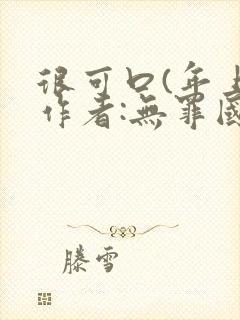 很可口(年上
作者:無罪國
滕雪